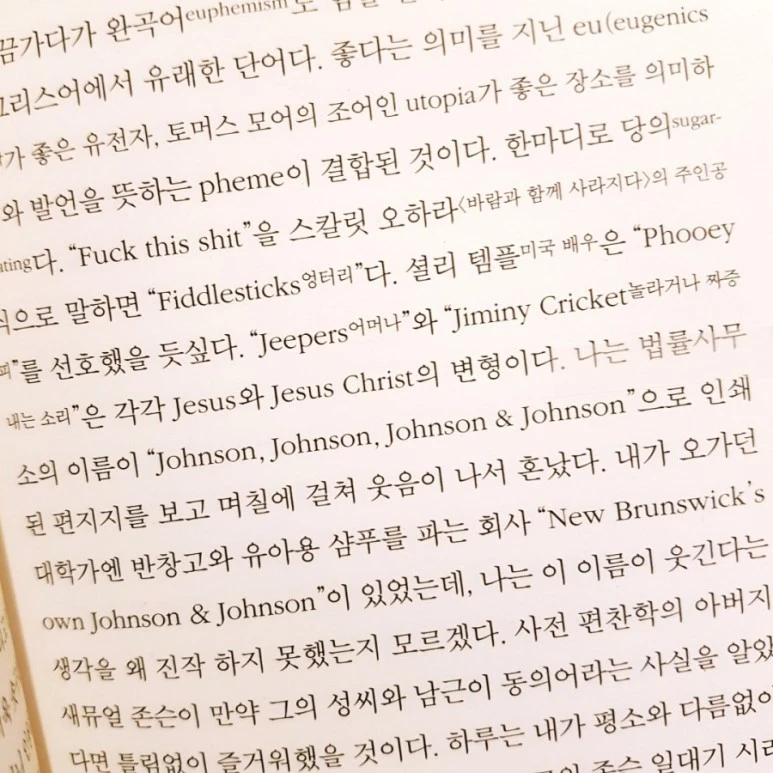 끔가다가 완곡어euphemism로
그리스어에서 유래한 단어다. 좋다는 의미를 지닌 eu(eugenics
가 좋은 유전자, 토머스 모어의 조어인 utopia가 좋은 장소를 의미하
와 발언을 뜻하는 pheme이 결합된 것이다. 한마디로 당의sugar-
ating다. “Fuck this shit”을 스칼릿 오하라〈바람과 함께 사라지다〉의 주인공
식으로 말하면 “Fiddlesticks엉터리”다. 셜리 템플미국 배우은 “Phooey
피”를 선호했을 듯싶다. “Jeepers어머나”와 “Jiminy Cricket놀라거나 짜증
내는 소리”은 각각 Jesus와 Jesus Christ의 변형이다. 나는 법률사무
소의 이름이 “Johnson, Johnson, Johnson & Johnson”으로 인쇄
된 편지지를 보고 며칠에 걸쳐 웃음이 나서 혼났다. 내가 오가던
대학가엔 반창고와 유아용 샴푸를 파는 회사 “New Brunswick’s
own Johnson & Johnson”이 있었는데, 나는 이 이름이 웃긴다는
생각을 왜 진작 하지 못했는지 모르겠다. 사전 편찬학의 아버지
새뮤얼 존슨이 만약 그의 성씨와 남근이 동의어라는 사실을 알았
다면 틀림없이 즐거워했을 것이다. 하루는 내가 평소와 다름없이
존슨 일대기 시리